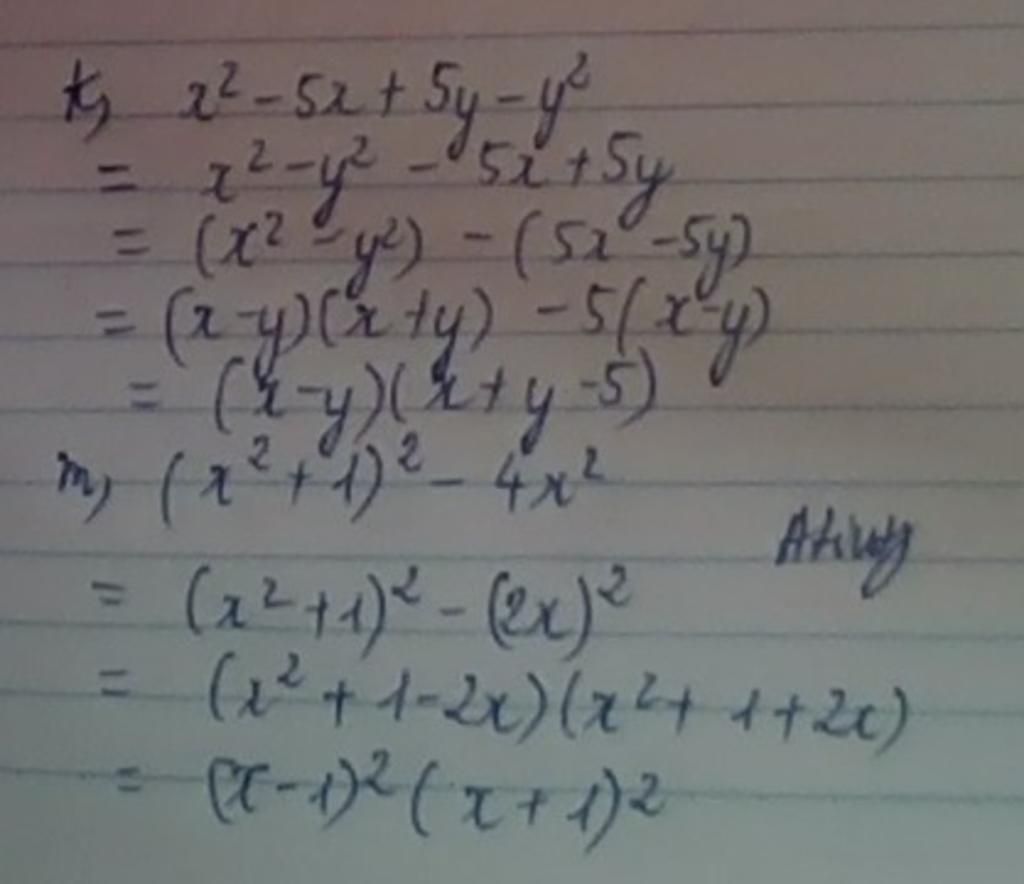 k, x² - 5x + 5y - y²
= x² - y² - 5x + 5y
= (x² - y²) - (5x - 5y)
= (x - y)(x + y) - 5(x - y)
= (x - y)(x + y - 5)
m, (x² + 1)² - 4x²
= (x² + 1)² - (2x)²
= (x² + 1 - 2x)(x² + 1 + 2x)
= (x - 1)² (x + 1)²